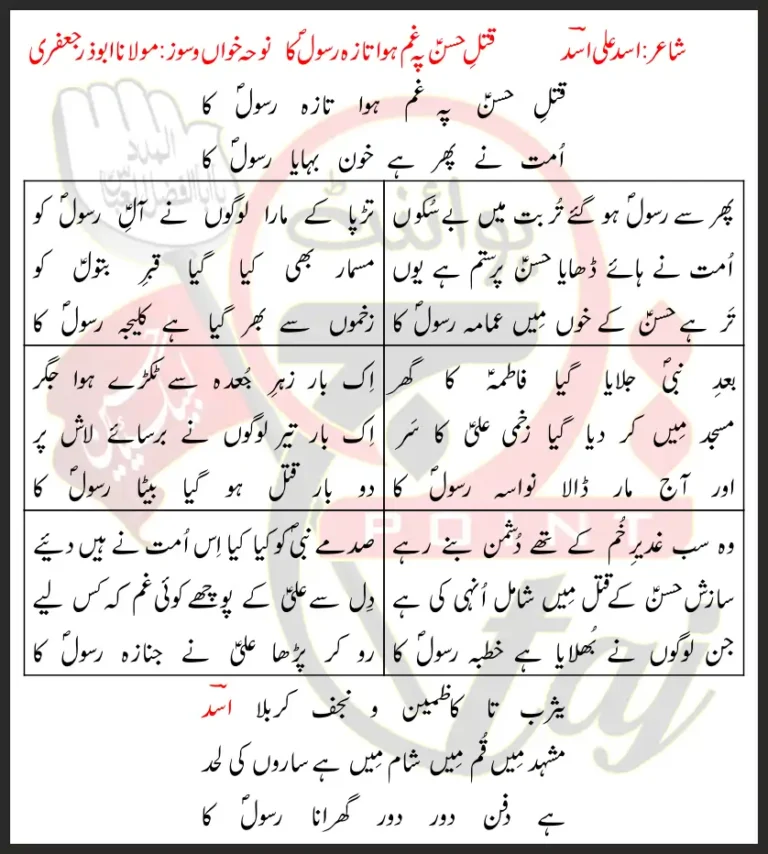 شاعر: اسد علی اسدؔ قتلِ حسنؑ پہ غم ہوا تازہ رسولؐ کا نوحہ خواں و سوز: مولانا ابوذر جعفری
قتلِ حسنؑ پہ غم ہوا تازہ رسولؐ کا
اُمت نے پھر ہے خون بہایا رسولؐ کا
پھر سے رسولؐ ہو گئے تُربت میں بے سُکوں
اُمت نے ہائے ڈھایا حسنؑ پر ستم ہے یوں
تَر ہے حسنؑ کے خوں مِیں عمامہ رسولؐ کا
تڑپا کے مارا لوگوں نے آلِؑ رسولؐ کو
مسمار بھی کیا گیا قبرِ بتولؑ کو
زخموں سے بھر گیا ہے کلیجہ رسولؐ کا
بعدِ نبیؐ جلایا گیا فاطمہؑ کا گھر
مسجد مِیں کر دیا گیا زخمی علیؑ کا سَر
اور آج مار ڈالا نواسہ رسولؐ کا
اِک بار زہرِ جُعدہ سے ٹکڑے ہوا جگر
اِک بار تیر لوگوں نے برسائے لاش پر
دو بار قتل ہو گیا بیٹا رسولؐ کا
وہ سب غدیرِ خُم کے تھے دُشمن بنے رہے
سازش حسنؑ کے قتل مِیں شامل اُنہی کی ہے
جن لوگوں نے بُھلایا ہے خطبہ رسولؐ کا
صدمے نبیؐ کو کیا کیا اِس اُمت نے ہیں دیئے
دِل سے علیؑ کے پوچھے کوئی غم کہ کس لیے
رو کر پڑھا علیؑ نے جنازہ رسولؐ کا
یثرب تا کاظمین و نجف کربلا اسدؔ
مشہد مِیں قُم مِیں شام مِیں ہے ساروں کی لحد
ہے دفن دور دور گھرانا رسولؐ کا
پوائنٹ
POINT
taj